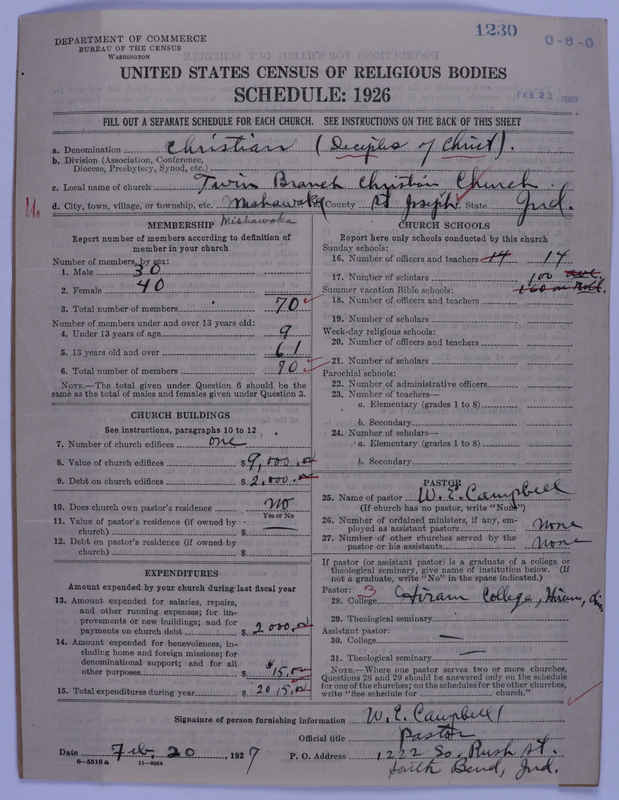 1230
0-6-0
DEPARTMENT OF COMMERCE
BUREAU OF THE CENSUS
WASHINGTON
UNITED STATES CENSUS OF RELIGIOUS BODIES
SCHEDULE: 1926
FEB 23
FILL OUT A SEPARATE SCHEDULE FOR EACH CHURCH. SEE INSTRUCTIONS ON THE BACK OF THIS SHEET
a. Denomination Christian (Deciples of Christ).
b. Division (Association, Conference, Diocese, Presbytery, Synod, etc.)
c. Local name of church Twin Branch Christian Church
d. City, town, village, or township, etc. Mishawaka County St Joseph. State Ind.
Mishawaka
MEMBERSHIP
Report number of members according to definition of member in your church
Number of members, by sex:
1. Male 30
2. Female 40
3. Total number of members 70
Number of members under and over 13 years old:
4. Under 13 years of age 9
5. 13 years old and over 61
6. Total number of members 70
NOTE.—The total given under Question 6 should be the same as the total of males and females given under Question 3.
CHURCH BUILDINGS
See instructions, paragraphs 10 to 12
7. Number of church edifices one
8. Value of church edifices $9,000.00
9. Debt on church edifices $2,000.00
10. Does church own pastor's residence no
Yes or No
11. Value of pastor's residence (if owned by church) $
12. Debt on pastor's residence (if owned by church) $
EXPENDITURES
Amount expended by your church during last fiscal year
13. Amount expended for salaries, repairs, and other running expenses; for improvements or new buildings; and for payments on church debt $2000.00
14. Amount expended for benevolences, including home and foreign missions; for denominational support; and for all other purposes $15.00
15. Total expenditures during year $2015.00
CHURCH SCHOOLS
Report here only schools conducted by this church
Sunday schools:
16. Number of officers and teachers 14 14
17. Number of scholars 100 ave.
160 on Roll.
Summer vacation Bible schools:
18. Number of officers and teachers
19. Number of scholars
Week-day religious schools:
20. Number of officers and teachers
21. Number of scholars
Parochial schools:
22. Number of administrative officers
23. Number of teachers—
a. Elementary (grades 1 to 8)
b. Secondary
24. Number of scholars—
a. Elementary (grades 1 to 8)
b. Secondary
PASTOR
25. Name of pastor W. E. Campbell
(If church has no pastor, write "None")
26. Number of ordained ministers, if any, employed as assistant pastors none
27. Number of other churches served by the pastor or his assistants none
If pastor (or assistant pastor) is a graduate of a college or theological seminary, give name of institution below. (If not a graduate, write "No" in the space indicated.)
Pastor: 3
28. College Hiram College, Hiram, Ohio
29. Theological seminary
Assistant pastor:
30. College —
31. Theological seminary —
NOTE.—Where one pastor serves two or more churches, Questions 28 and 29 should be answered only on the schedule for one of the churches; on the schedules for the other churches, write "See schedule for church."
Signature of person furnishing information W. E. Campbell
Official title pastor
Date Feb, 20, 1927 P. O. Address 1222 So. Rush St.
South Bend, Ind.
8-5518a 11-9064